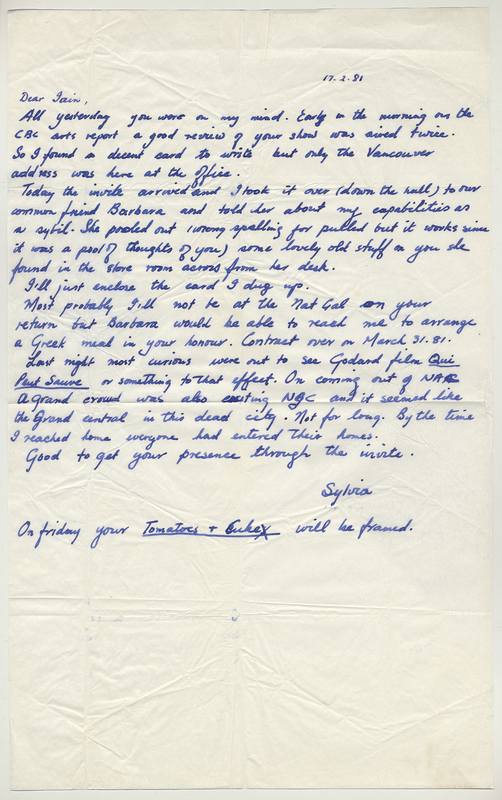 17.2.81
Dear Iain,
All yesterday you were on my mind. Early in the morning on the
CBC arts report a good review of your show was aired twice.
So I found a decent card to write but only the Vancouver
address was here at the office.
Today the invite arrived and I took it over (down the hall) to our
common friend Barbara and told her about my capabilities as
a sybil. She pooled out (wrong spelling for pulled but it works since
it was a pool of thoughts of you) some lovely old stuff on you she
found in the store room across from her desk.
I'll just enclose the card I dug up.
Most probably I'll not be at the Nat Gal on your
return but Barbara would be able to reach me to arrange
a Greek meal in your honour. Contract over on March 31.81.
Last night most curious were out to see Godard film Qui
Peut Sauve or something to that effect. On coming out of
A grand crowd was also exiting NGC and it seemed like
the Grand central in this dead city. Not for long. By the time
I reached home everyone had entered their homes.
Good to get your presence through the invite.
Sylvia
On friday your Tomatoes + Cukes will be framed.